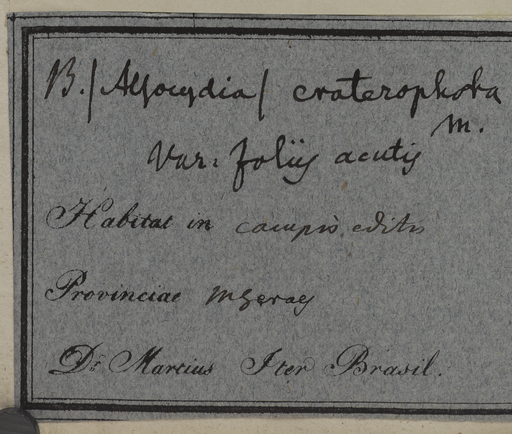 B. / Alsocydia / craterophora
m.
Var: foliis acutis
Habitat in campis editis
Provinciae M Geraes
Dr. Martius Iter Brasil.